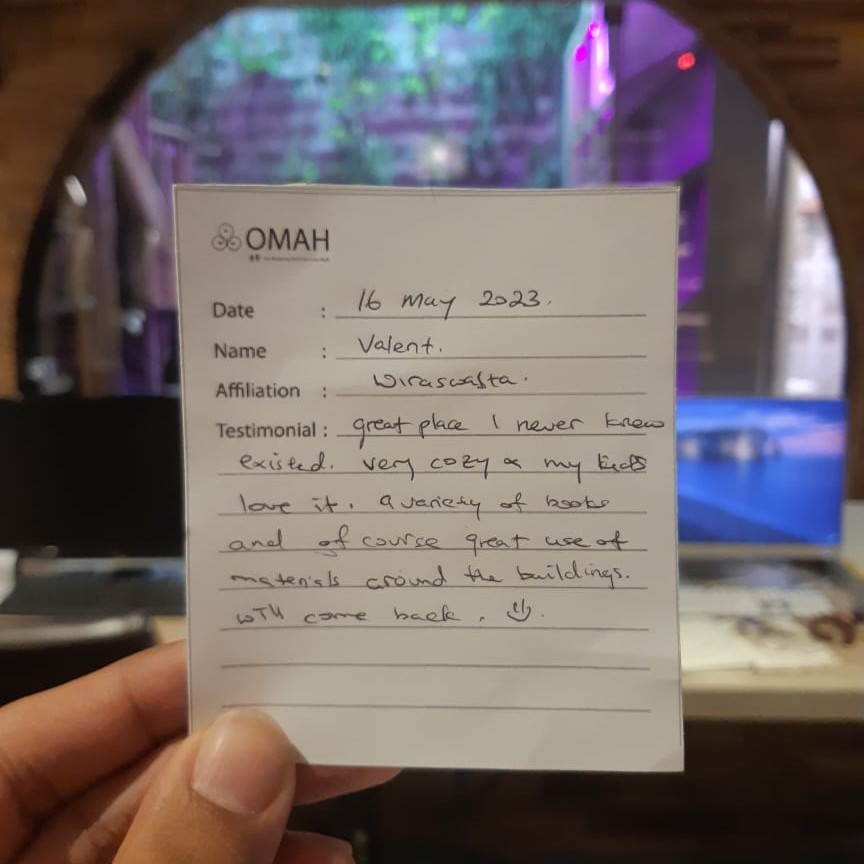 OMAH
Date : 16 May 2023.
Name : Valent.
Affiliation : Wiraswasta.
Testimonial : great place I never knew
existed. very cozy & my kids
love it. a variety of books
and of course great use of
materials around the buildings.
will come back. :)